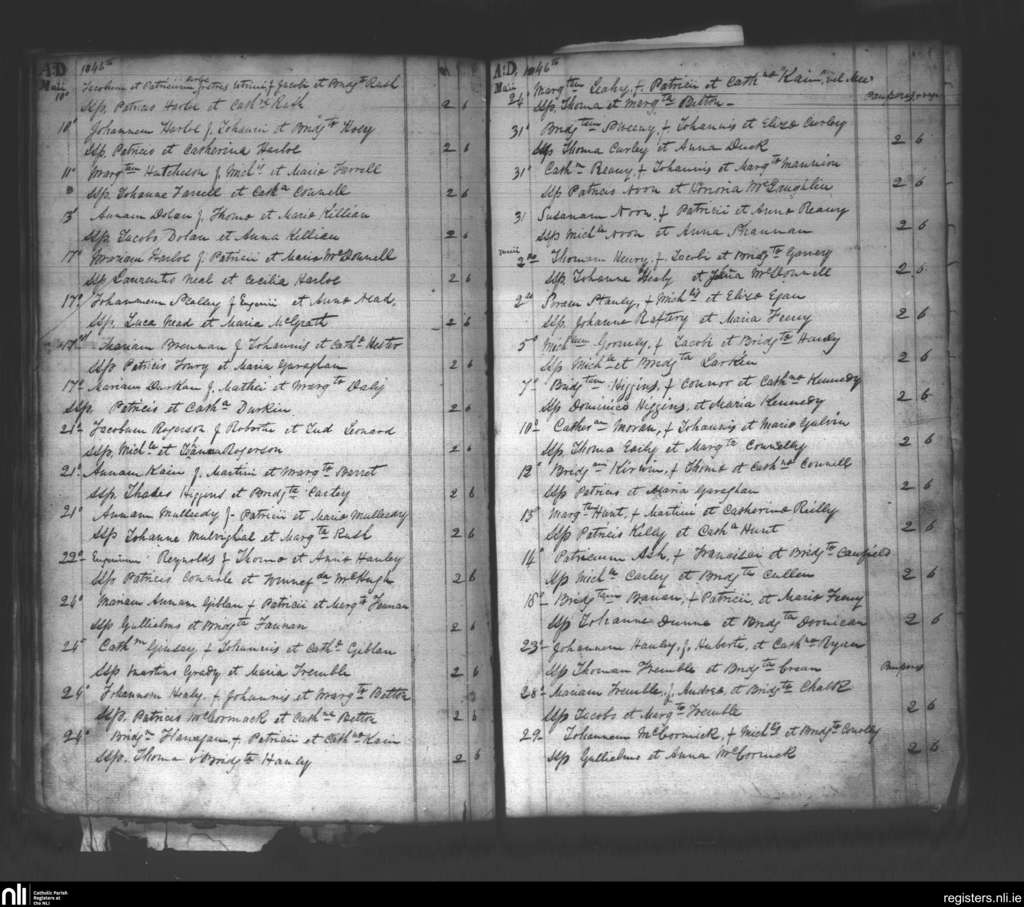 A:D 1846th
Maii
10° Jacobum et Patricium gemellos fratres f Jacobi et Bridgta Rush
Ssp. Patrico Harloe et Cathna Rush 2 6
10° Johannem Harloe f. Johannis et Bridgta Hoey
Ssp. Patricio et Catherina Harloe 2 6
11° Margtam Hutcheson f Michlis et Maria Farrell
Ssp. Johanne Farrell et Catha Connell 2 6
13° Annam Dolan f. Thoma et Maria Killian
Ssp. Jacobo Dolan et Anna Killian 2 6
17° Mariam Harloe f Patricii et Maria McDonnell
Ssp Laurentio Neal et Cecilia Harloe 2 6
17° Johannem Healey f Eugenii et Anna Nead,
Ssp. Luca Nead et Maria McGrath 2 6
17° Thariam Brennan f Johannis et Cathe Hester
Ssp Patricio Towey et Maria Garaghan 2 6
17° Mariam Durkan f. Mathei et Margta Daly
Ssp. Patricio et Catha Durkin 2 6
21° Jacobum Rogerson f Roberto et Jud Leonard
Ssp. Michle et Rogerson 2 6
21° Annam Kain f. Martini et Margta Barret
Ssp. Thadeo Higgins et Bridgta Carley 2 6
21° Annam Mulleedy f. Patricii et Maria Mulleedy
Ssp Johanne Mulvighal et Margta Rush 2 6
22° Eugenium Reynolds f Thoma et Anna Hanley
Ssp Patricio Connole et Winney McHugh 2 6
24° Mariam Annam Giblan f Patricii et Margta Fannan
Ssp Gullielmo et Bridgta Fannan 2 6
24° Cathm Ginday f Johannis et Catha Giblan
Ssp Martino Grady et Maria Tremble 2 6
24° Johannem Healy f Johannis et Margta Bettee
Ssp. Patricio McCormack et Cathna Bettee 2 6
24° Bridgm Flanagan, f Patricii et Cathna Kain
Ssp. Thoma & Bridgta Hanly 2 6
A:D, 1846th
Maii
24° Margtam Leahy, f. Patricii et Cathna "Kain,"
Ssp. Thoma et Margta Bettee
31° Bridgtam Piveeny, f Johannis et Eliza Curley
Ssp Thoma Curley et Anna Duck 2 6
31° Catha Reany, f Johannis et Margta Mannion
Ssp Patricio Noon et Honoria McLaughlin 2 6
31 Susanam Noon, f Patricii et Anna Reany
Ssp Michle Noon et Anna Shannan 2 6
Junii
2do Thomam Henry, f. Jacobi et Bridgta Garvey
Ssp. Johanne Healy et Julia McDonnell 2 6
2do Stanly, f Michlis et Eliza Egan
Ssp. Johanne Raftery et Maria Feeny 2 6
5° Michlem Gormly, f Jacobi et Bridgta Hardy
Ssp Michle et Bridgta Larkin 2 6
7° Bridgtam Higgins, f Connor et Cathna Kennedy
Ssp Dominico Higgins, et Maria Kennedy 2 6
10° Catheram Moran, f Johannis et Maria Galvin
Ssp. Thoma Early et Margta Connelly 2 6
12° Bridgam Kirwin, f Thoma et Cathna Connell
Ssp Patricio et Maria Garaghan 2 6
13° Margta Hunt, f Martini et Catherina Reilly
Ssp Patricio Kelly et Catha Hunt 2 6
14° Patricium Ash, f Francisci et Bridgta Caufield
Ssp Michle Carley et Bridgta Cullen 2 6
15° Bridgtam Banan, f Patricii, et Maria Feeny
Ssp Johanne Dunne et Bridgta Dornican 2 6
23° Johannem Hanly, f, Huberto, et Cathna Ryan
Ssp Thoman Tremble et Bridgta Crean
28° Mariam Tremble, f. Andrea, et Bridgta Chalk
Ssp Jacobo et Margta Tremble 2 6
29 Johannem McCormick, f Michlis et Bridgta Conolly
Ssp Gullielmo et Anna McCormick 2 6
nli
Catholic Parish
Registers at
the NLI
registers.nli.ie